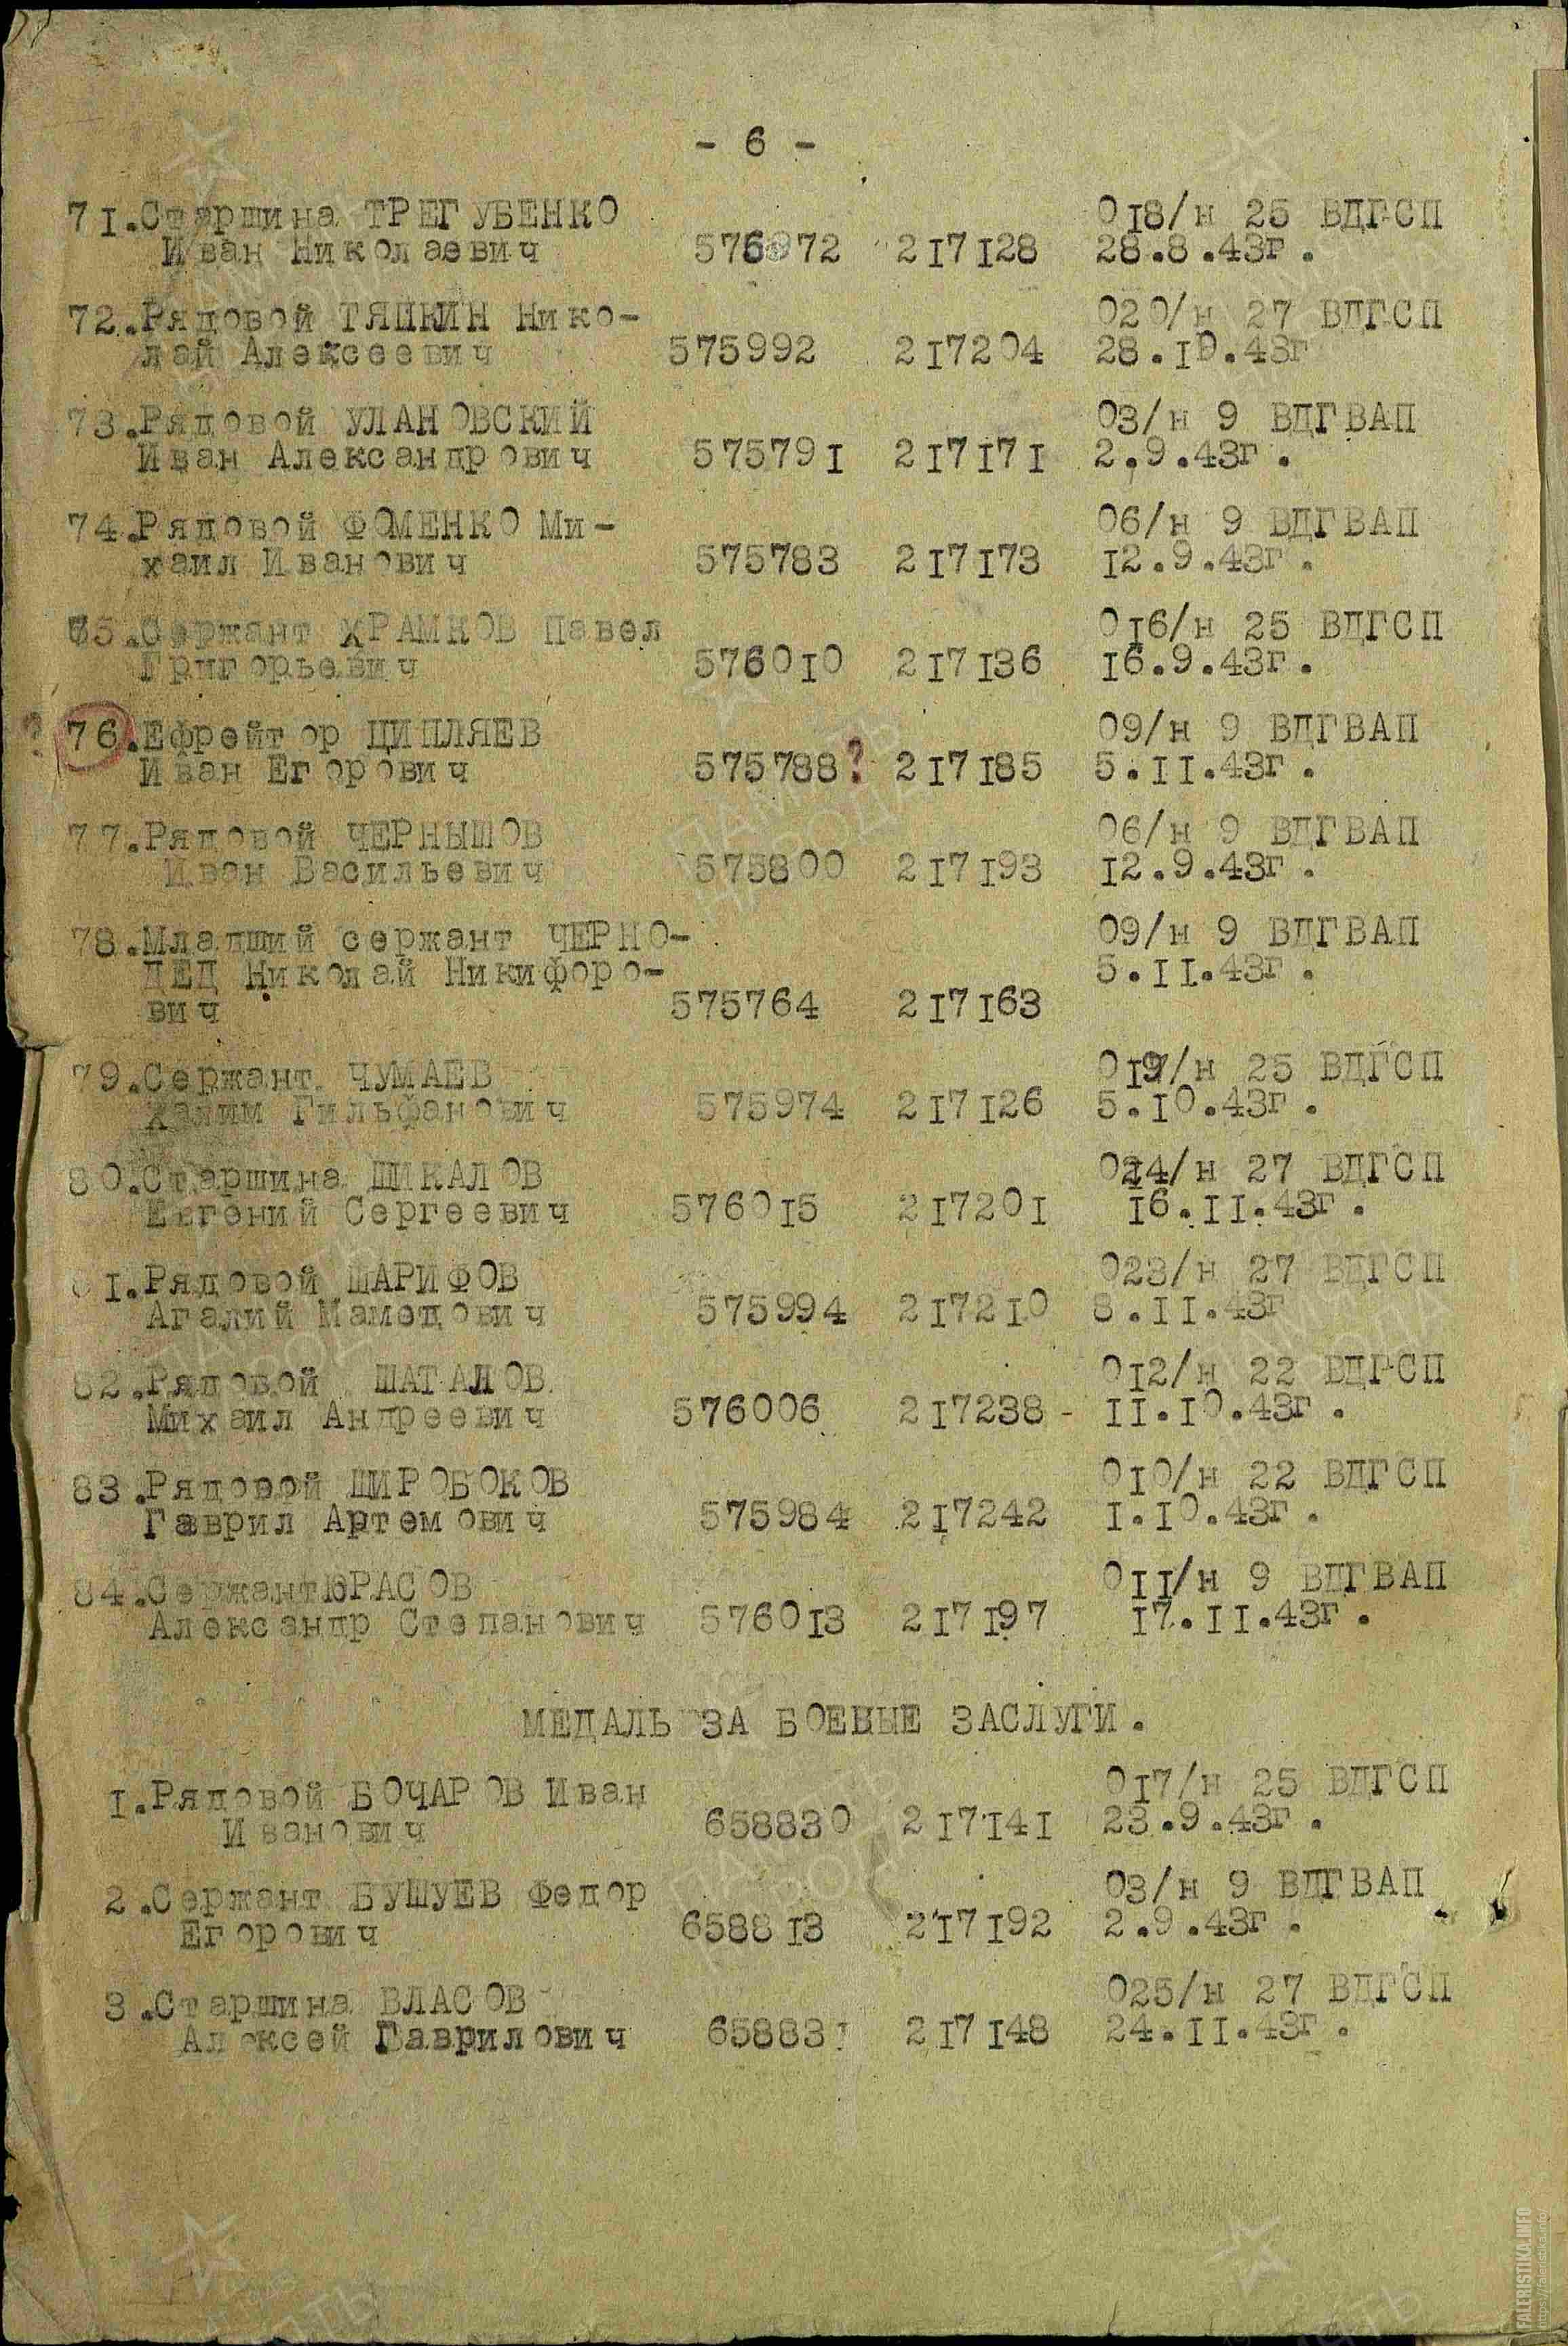 - 6 -
71.Старшина ТРЕГУБЕНКО 018/н 25 ВДГСП
Иван Николаевич 576972 217128 28.8.43г.
72.Рядовой ТЯПКИН Нико- 020/н 27 ВДГСП
лай Алексеевич 575992 217204 28.10.43г
73.Рядовой УЛАНОВСКИЙ 03/н 9 ВДГВАП
Иван Александрович 575791 217171 2.9.43г.
74.Рядовой ФОМЕНКО Ми- 06/н 9 ВДГВАП
хаил Иванович 575783 217173 12.9.43г.
75.Сержант ХРАМКОВ Павел 016/н 25 ВДГСП
Григорьевич 576010 217136 16.9.43г.
? 76.Ефрейтор ЦИПЛЯЕВ 09/н 9 ВДГВАП
Иван Егорович 575788? 217185 5.11.43г.
77.Рядовой ЧЕРНЫШОВ 06/н 9 ВДГВАП
Иван Васильевич 575800 217193 12.9.43г.
78.Младший сержант ЧЕРНО- 09/н 9 ВДГВАП
ДЕД Николай Никифоро- 5.11.43г.
вич 575764 217163
79.Сержант ЧУМАЕВ 019/н 25 ВДГСП
Халим Гильфанович 575974 217126 5.10.43г.
80.Старшина ШИКАЛОВ 024/н 27 ВДГСП
Евгений Сергеевич 576015 217201 16.11.43г.
81.Рядовой ШАРИФОВ 023/н 27 ВДГСП
Агалий Мамедович 575994 217210 8.11.43г
82.Рядовой ШАТАЛОВ 012/н 22 ВДГСП
Михаил Андреевич 576006 217238 - 11.10.43г.
83.Рядовой ШИРОБОКОВ 010/н 22 ВДГСП
Гаврил Артемович 575984 217242 1.10.43г.
84.Сержант ЮРАСОВ 011/н 9 ВДГВАП
Александр Степанович 576013 217197 17.11.43г.
МЕДАЛЬ ЗА БОЕВЫЕ ЗАСЛУГИ.
1.Рядовой БОЧАРОВ Иван 017/н 25 ВДГСП
Иванович 658830 217141 23.9.43г.
2.Сержант БУШУЕВ Федор 03/н 9 ВДГВАП
Егорович 658813 217192 2.9.43г.
3.Старшина ВЛАСОВ 025/н 27 ВДГСП
Алексей Гаврилович 658831 217148 24.11.43г.
FALERISTIKA.INFO
https://faleristika.info/